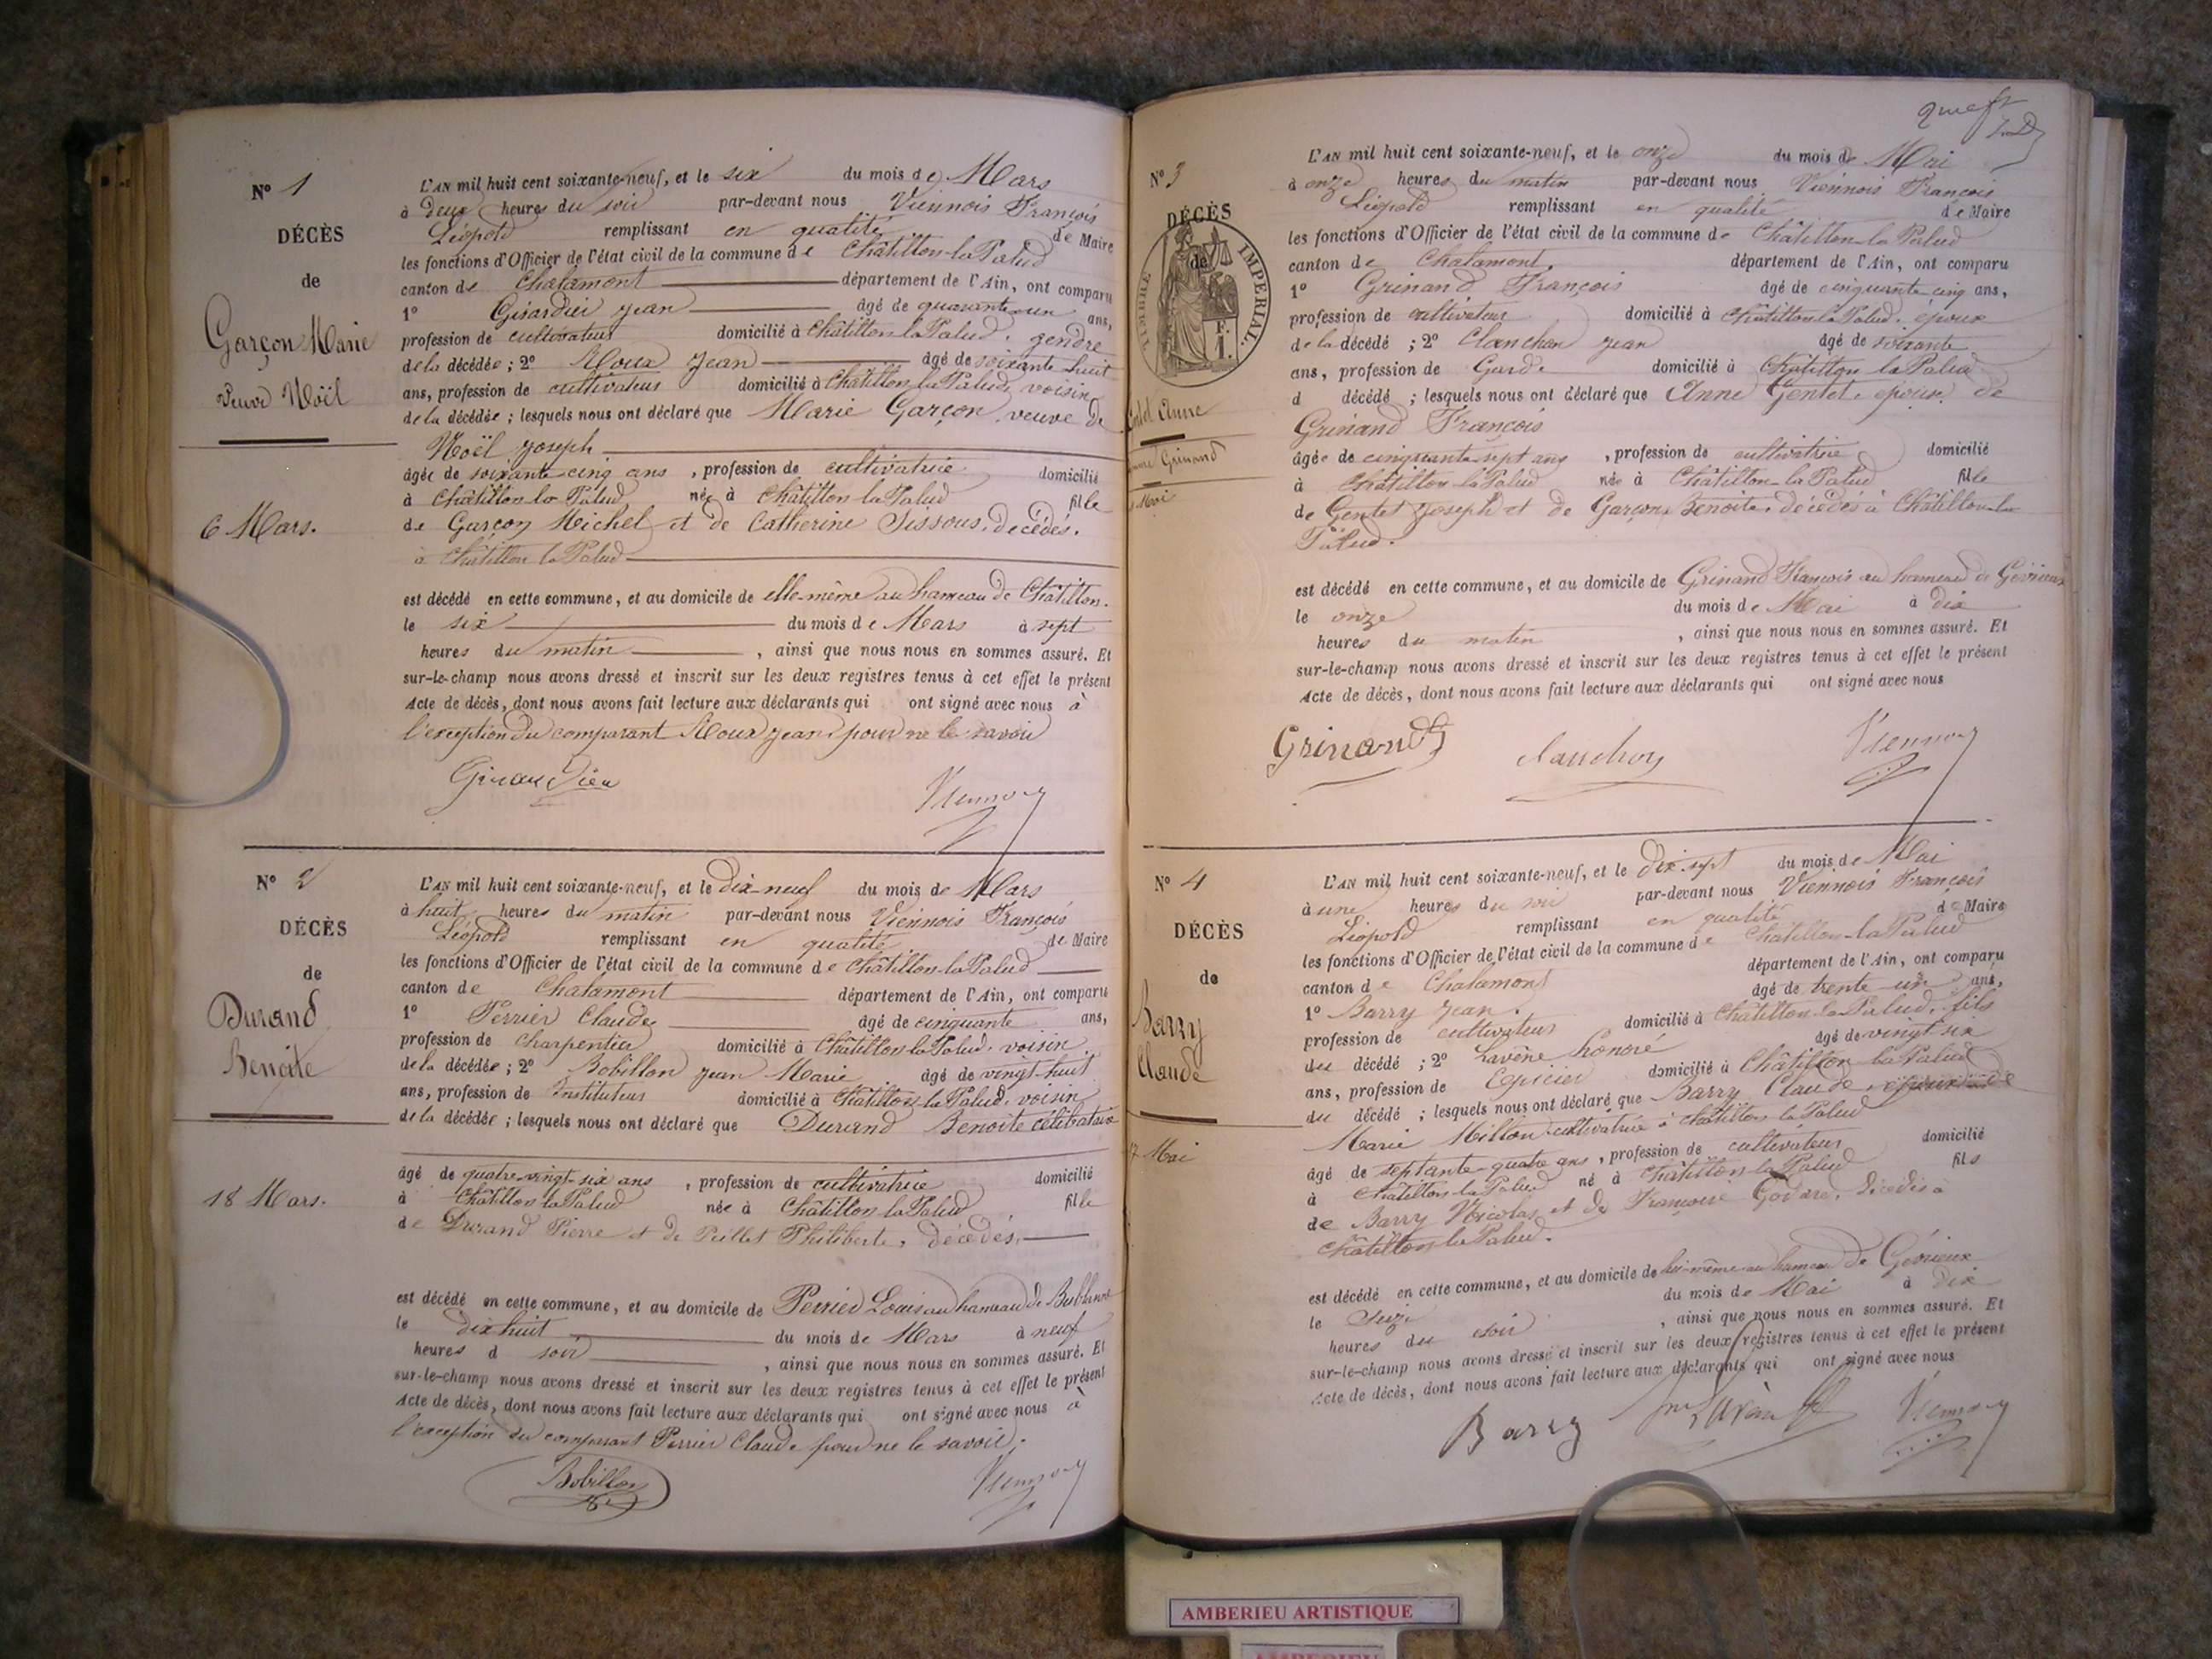 N° 1
DÉCÈS
de
Garçon Marie
Veuve Noël
6 Mars.
L'AN mil huit cent soixante-neuf, et le six du mois de Mars
à deux heures du soir par-devant nous Viennois François
Léopold remplissant en qualité de Maire
les fonctions d'Officier de l'état civil de la commune de Châtillon-la-Palud
canton de Chalamont département de l'Ain, ont comparu
1° Girardier Jean âgé de quarante-un ans,
profession de cultivateur domicilié à Châtillon la Palud, gendre
de la décédée ; 2° Roux Jean âgé de soixante huit
ans, profession de cultivateur domicilié à Châtillon la Palud, voisin
de la décédée ; lesquels nous ont déclaré que Marie Garçon, veuve de
Noël Joseph
âgée de soixante cinq ans , profession de cultivatrice domicilié
à Châtillon la Palud née à Châtillon la Palud fille
de Garçon Michel et de Catherine Tissous, décédés.
à Châtillon la Palud
est décédé en cette commune, et au domicile de elle-même au hameau de Châtillon.
le six du mois de Mars à sept
heures du matin , ainsi que nous nous en sommes assuré. Et
sur-le-champ nous avons dressé et inscrit sur les deux registres tenus à cet effet le présent
Acte de décès, dont nous avons fait lecture aux déclarants qui ont signé avec nous à
l'exception du comparant Roux Jean pour ne le savoir
Viennois
N° 2
DÉCÈS
de
Durand
Benoite
18 Mars.
L'AN mil huit cent soixante-neuf, et le dix-neuf du mois de Mars
à huit heures du matin par-devant nous Viennois François
Léopold remplissant en qualité de Maire
les fonctions d'Officier de l'état civil de la commune de Châtillon-la-Palud
canton de Chalamont département de l'Ain, ont comparu
1° Perrier Claude âgé de cinquante ans,
profession de charpentier domicilié à Châtillon la Palud, voisin
de la décédée ; 2° Bobillon Jean Marie âgé de vingt-huit
ans, profession de Instituteur domicilié à Châtillon la Palud, voisin
de la décédée ; lesquels nous ont déclaré que Durand Benoite célibataire
âgé de quatre-vingt-six ans , profession de cultivatrice domicilié
à Châtillon la Palud née à Châtillon la Palud fille
de Durand Pierre et de Philiberte, décédés,
est décédé en cette commune, et au domicile de Perrier Louis au hameau de
le dix huit du mois de Mars à neuf
heures d soir , ainsi que nous nous en sommes assuré. Et
sur-le-champ nous avons dressé et inscrit sur les deux registres tenus à cet effet le présent
Acte de décès, dont nous avons fait lecture aux déclarants qui ont signé avec nous à
l'exception du comparant Perrier Claude pour ne le savoir.
Bobillon Viennois
N° 3
DÉCÈS
de
TIMBRE IMPÉRIAL.
F.
1.
Anne
Grinand
Mai
L'AN mil huit cent soixante-neuf, et le onze du mois de Mai
à onze heures du matin par-devant nous Viennois François
Léopold remplissant en qualité de Maire
les fonctions d'Officier de l'état civil de la commune de Châtillon-la-Palud
canton de Chalamont département de l'Ain, ont comparu
1° Grinand François âgé de cinquante cinq ans,
profession de cultivateur domicilié à Châtillon la Palud, époux
de la décédée ; 2° Clanchon Jean âgé de soixante
ans, profession de Garde domicilié à Châtillon la Palud
d décédé ; lesquels nous ont déclaré que Anne Gentet, épouse de
Grinand François
âgée de cinquante-sept ans , profession de cultivatrice domicilié
à Châtillon-la-Palud née à Châtillon-la Palud fille
de Gentet Joseph et de Garçon Benoite, décédés à Châtillon-la
Palud.
est décédé en cette commune, et au domicile de Grinand François au hameau de Gévrieux
le onze du mois de Mai à dix
heures du matin , ainsi que nous nous en sommes assuré. Et
sur-le-champ nous avons dressé et inscrit sur les deux registres tenus à cet effet le présent
Acte de décès, dont nous avons fait lecture aux déclarants qui ont signé avec nous
Grinand Viennois
N° 4
DÉCÈS
de
Barry
Claude
17 Mai
L'AN mil huit cent soixante-neuf, et le dix-sept du mois de Mai
à une heures du soir par-devant nous Viennois François
Léopold remplissant en qualité de Maire
les fonctions d'Officier de l'état civil de la commune de Châtillon-la-Palud
canton de Chalamont département de l'Ain, ont comparu
1° Barry Jean. âgé de trente un ans,
profession de cultivateur domicilié à Châtillon-la-Palud, fils
du décédé ; 2° Lavêne honoré âgé de vingt-six
ans, profession de Epicier domicilié à Châtillon la Palud
du décédé ; lesquels nous ont déclaré que Barry Claude, époux de
Marie Millon cultivatrice à Châtillon la Palud
âgé de septante-quatre ans , profession de cultivateur domicilié
à Châtillon la Palud né à Châtillon la Palud fils
de Barry Nicolas et de Françoise Godard, décédés à
Châtillon la Palud.
est décédé en cette commune, et au domicile de lui-même au hameau de Gévrieux
le Seize du mois de Mai à dix
heures du soir , ainsi que nous nous en sommes assuré. Et
sur-le-champ nous avons dressé et inscrit sur les deux registres tenus à cet effet le présent
Acte de décès, dont nous avons fait lecture aux déclarants qui ont signé avec nous
Barry Viennois
AMBERIEU ARTISTIQUE
AMBERIEU